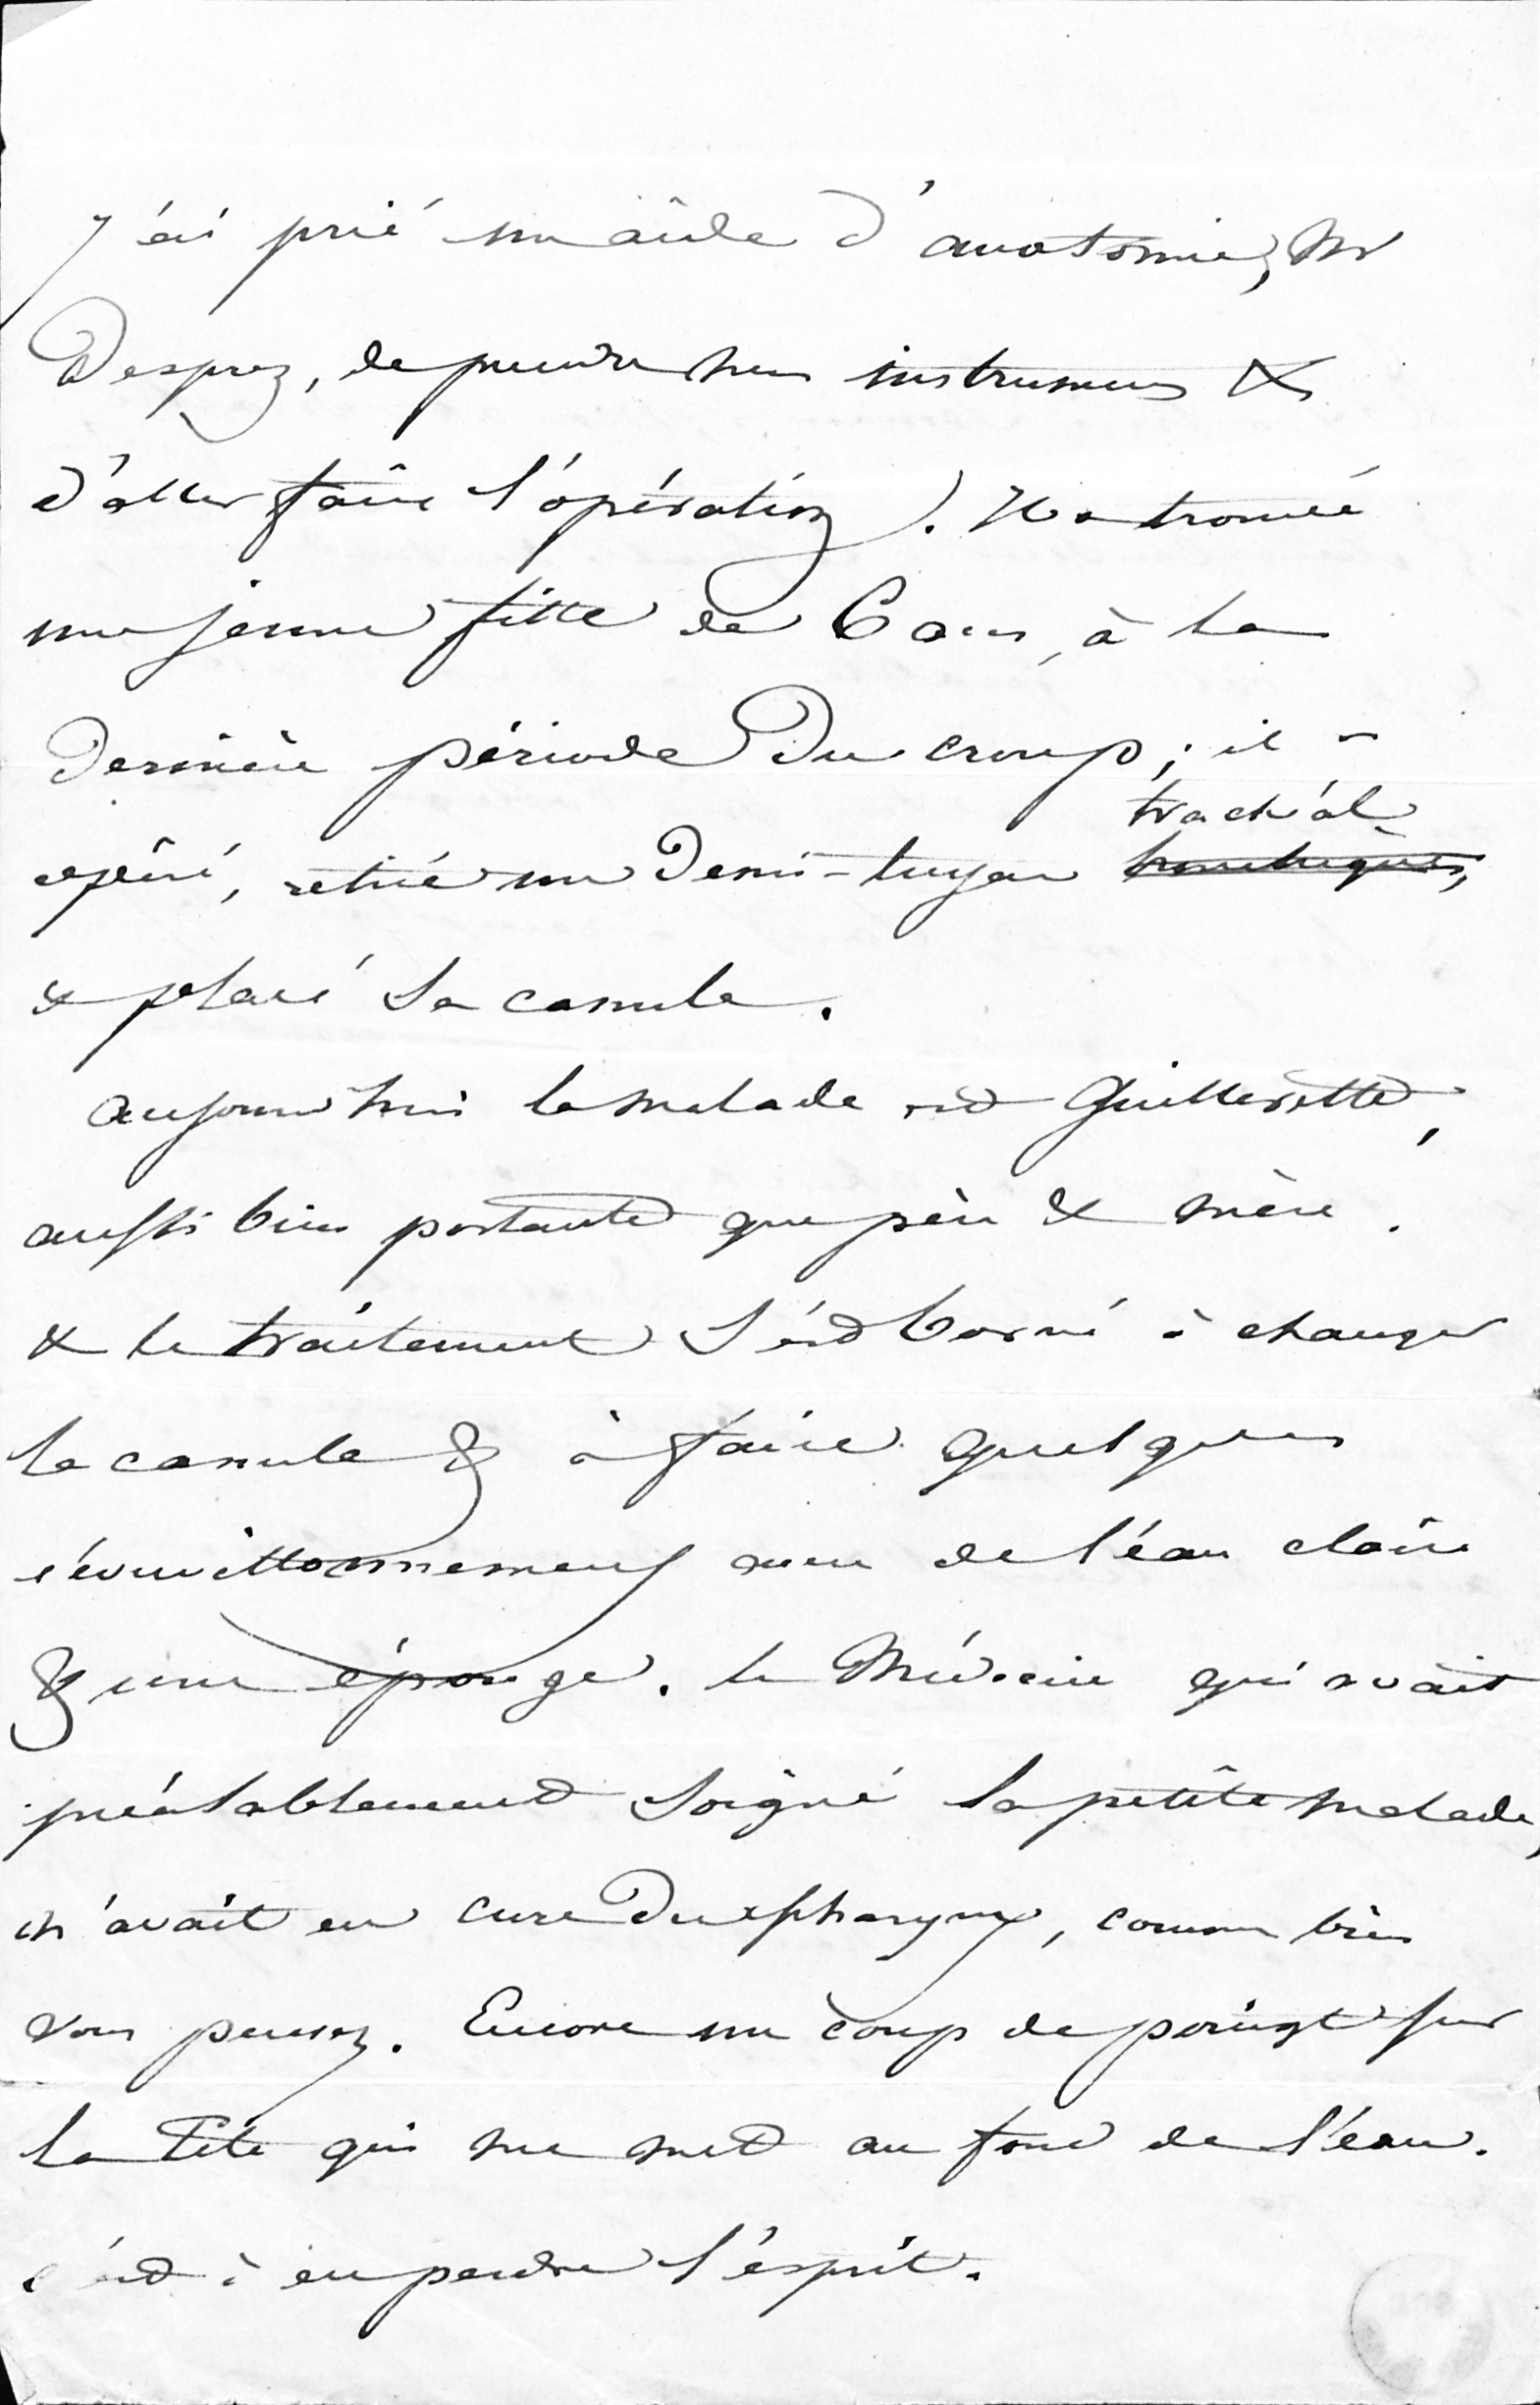 J'ai prié mon aide d'anatomie, Mr
Desprez, de prendre mes instrumens &
d'aller faire l'opération). Il a trouvé
une jeune fille de 6 ans, à la
dernière période du croup; il a
trachéal
opéré, retiré un demi-tuyau
& placé la canule.
aujourd'hui la malade est guillerette,
aussi bien portante que père & mère.
& le traitement s'est borné à changer
la canule & à faire quelques
écouvillonnemens avec de l'eau claire
& une éponge. le Médecin qui avait
préalablement soigné la petite malade,
n'avait eu cure du pharynx, comme bien
vous pensez. Encore un coup de poingt sur
la tête qui me met au fond de l'eau.
c'est à en perdre l'esprit.